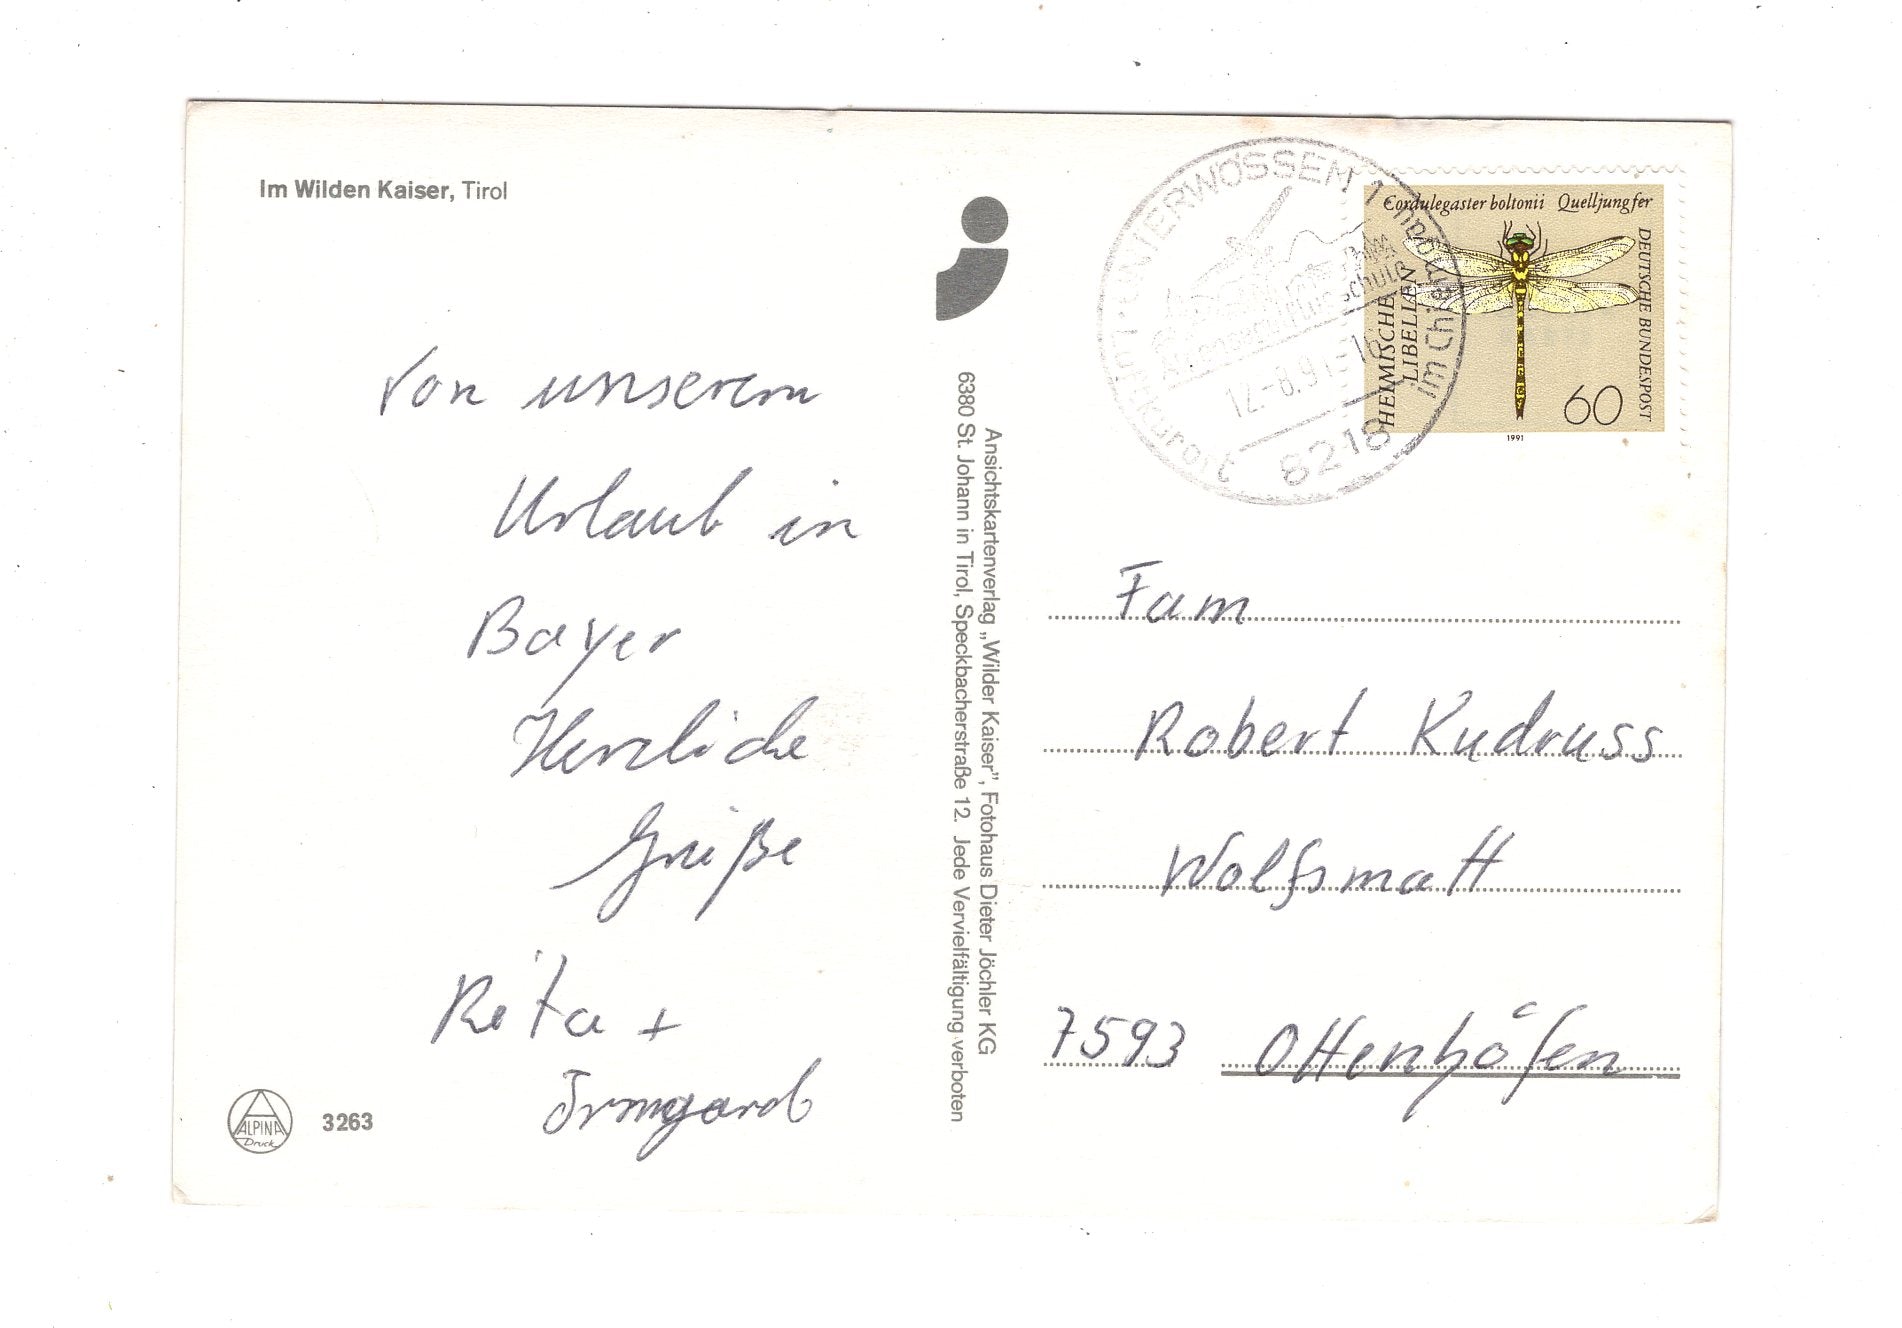 Im Wilden Kaiser, Tirol
Von unserem
Urlaub in
Bayer
Herzliche
Grüße
Rita +
Irmgard
ALPINA
Druck
3263
Ansichtskartenverlag „Wilder Kaiser", Fotohaus Dieter Jöchler KG
6380 St. Johann in Tirol, Speckbacherstraße 12. Jede Vervielfältigung verboten
UNTERWÖSSEN 1
im Chiemgau
Luftkurort
Alpensegelflugschule
12.-8.91-16
8218
Cordulegaster boltonii Quelljungfer
HEIMISCHE
LIBELLEN
DEUTSCHE BUNDESPOST
60
1991
Fam
Robert Kudruss
Wolfsmatt
7593 Ottenhöfen